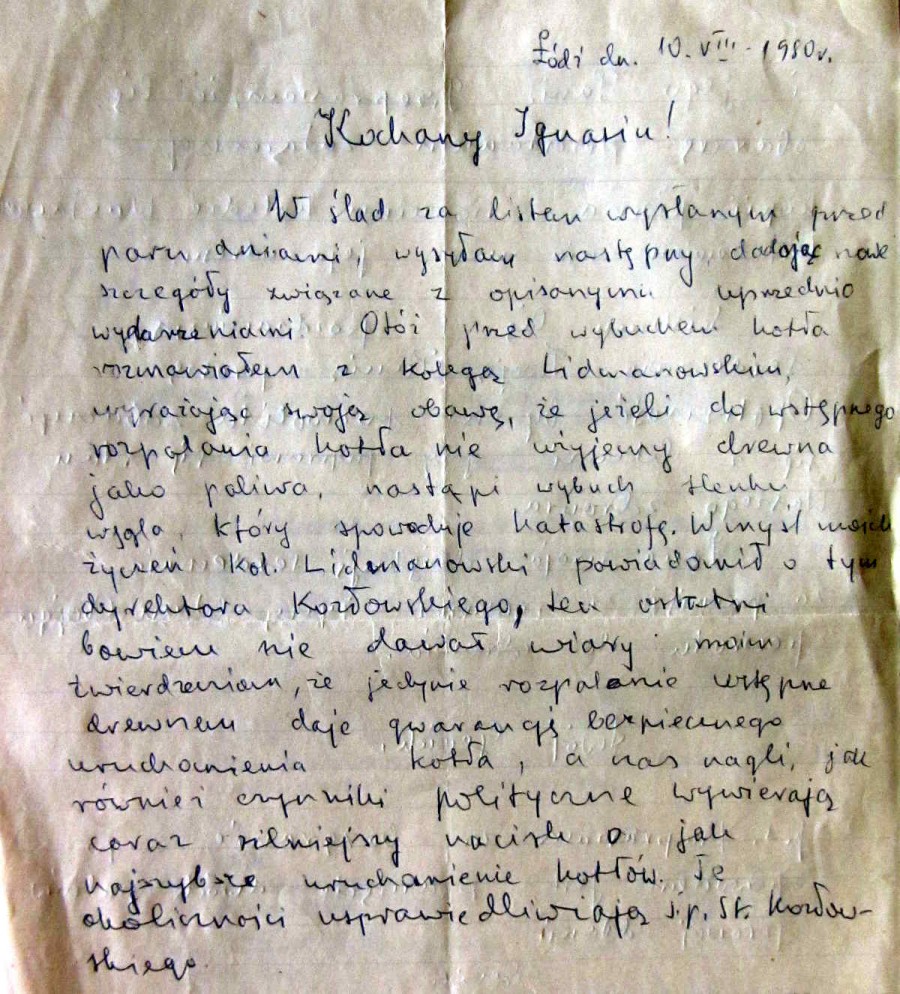 Łódź dn. 10. VIII. 1980r.
Kochany Ignasiu!
W ślad za listem wysłanym przed
paru dniami, wysyłam następny, dodając nowe
szczegóły związane z opisanymi uprzednio
wydarzeniami. Otóż przed wybuchem kotła
rozmawiałem z kolegą Lidmanowskim,
wyrażając swoją obawę, że jeżeli do wstępnego
rozpalania kotła nie użyjemy drewna
jako paliwa, nastąpi wybuch tlenku
węgla, który spowoduje katastrofę. W myśl moich
życzeń kol. Lidmanowski powiadomił o tym
dyrektora Kozłowskiego, ten ostatni
bowiem nie dawał wiary moim
twierdzeniom, że jedynie rozpalanie wstępne
drewnem daje gwarancję bezpiecznego
uruchomienia kotła, a nas nagli, jak
również czynniki polityczne wywierają
coraz silniejszy nacisk o jak
najszybsze uruchomienie kotłów. Te
okoliczności usprawiedliwiają ś.p. St. Kozłow-
skiego.